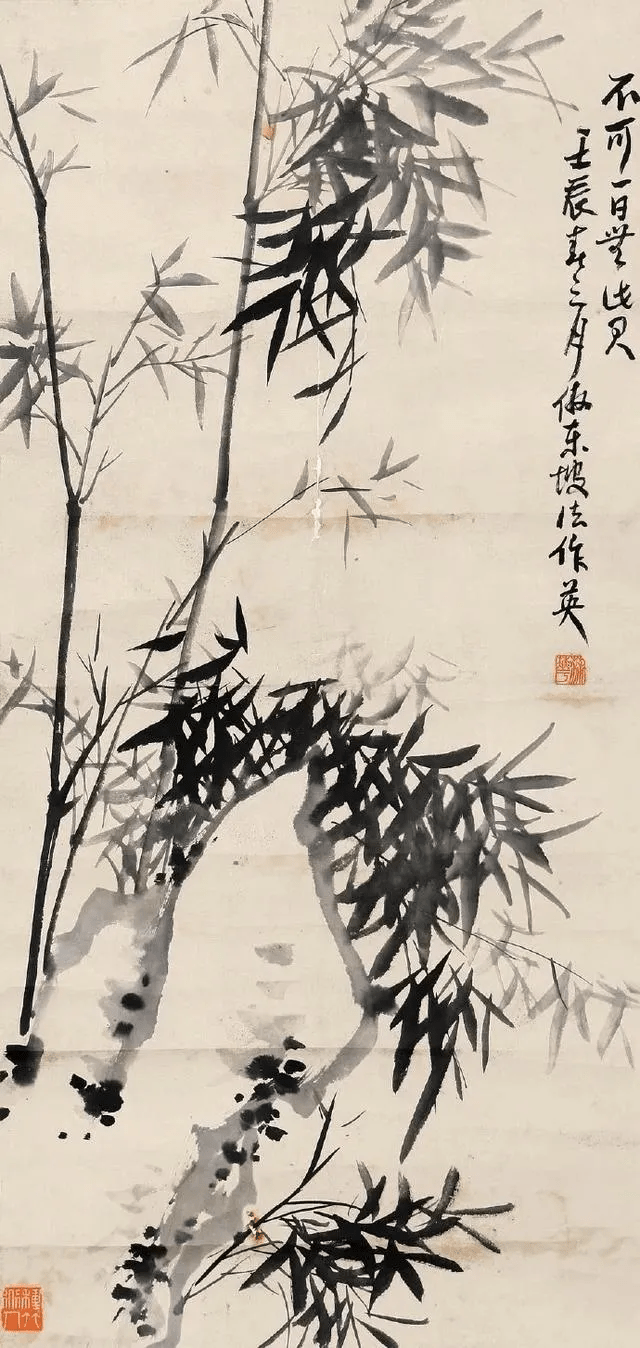 不可一日無此君
壬辰春三月倣東坡法作英